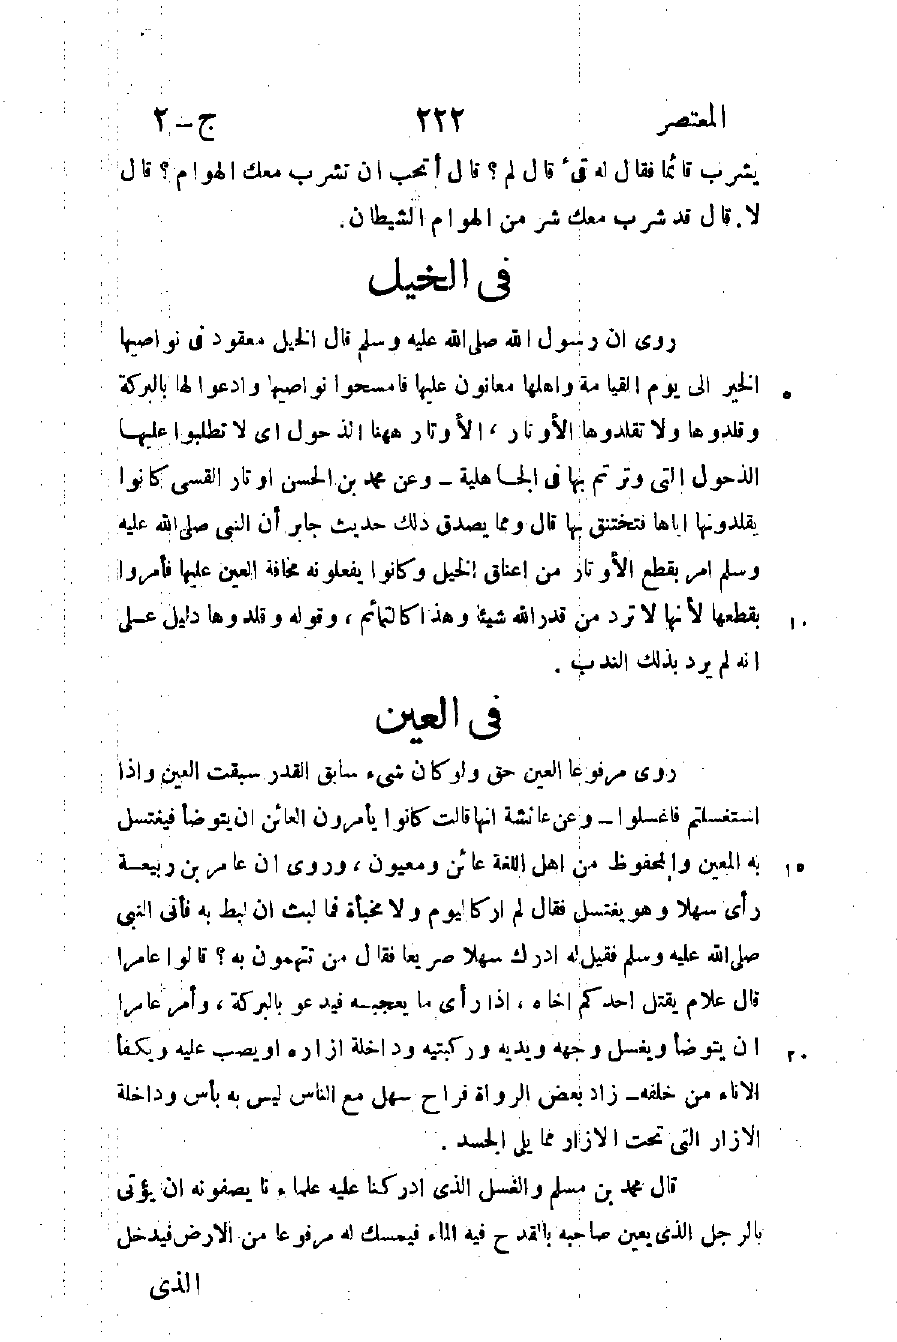 المعتصر ٢٢٢ ج – ٢
يشرب قائما فقال له قىء قال لم؟ قال أتحب ان تشرب معك الهوام؟ قال
لا. قال قد شرب معك شر من الهوام الشيطان.
فى الخيل
روى ان رسول الله صلى الله عليه وسلم قال الخيل معقود فى نواصيها
الخير الى يوم القيامة واهلها معانون عليها فامسحوا نواصيها وادعوا لها بالبركة ٥
وقلدوها ولا تقلدوها الأوتار ، الأوتار ههنا الذحول اى لا تطلبوا عليها
الذحول التى وترتم بها فى الجاهلية – وعن محمد بن الحسن اوتار القسى كانوا
يقلدونها اياها فتختنق بها قال ومما يصدق ذلك حديث جابر أن النبى صلى الله عليه
وسلم امر بقطع الأوتار من اعناق الخيل وكانوا يفعلونه مخافة العين عليها فأمروا
بقطعها لأنها لا ترد من قدر الله شيئا وهذا كالتمائم ، وقوله وقلدوها دليل على ١٠
انه لم يرد بذلك الندب .
فى العين
روى مرفوعا العين حق ولو كان شىء سابق القدر سبقت العين واذا
استغسلتم فاغسلوا – وعن عائشة انها قالت كانوا يأمرون العائن ان يتوضأ فيغتسل
به المعين والمحفوظ من اهل اللغة عائن ومعيون ، وروى ان عامر بن ربيعة ١٥
رأى سهلا وهو يغتسل فقال لم ار كاليوم ولا مخبأة فما لبث ان لبط به فأتى النبى
صلى الله عليه وسلم فقيل له ادرك سهلا صريعا فقال من تتهمون به؟ قالوا عامرا
قال علام يقتل احدكم اخاه ، اذا رأى ما يعجبه فيدعو بالبركة ، وأمر عامرا
ان يتوضأ ويغسل وجهه ويديه وركبتيه وداخلة ازاره او يصب عليه ويكفأ ٢٠
الاناء من خلفه – زاد بعض الرواة فراح سهل مع الناس ليس به بأس وداخلة
الازار التى تحت الازار مما يلى الجسد .
قال محمد بن مسلم والغسل الذى ادركنا عليه علماءنا يصفونه ان يؤتى
بالرجل الذى يعين صاحبه بالقدح فيه الماء فيمسك له مرفوعا من الارض فيدخل
الذى